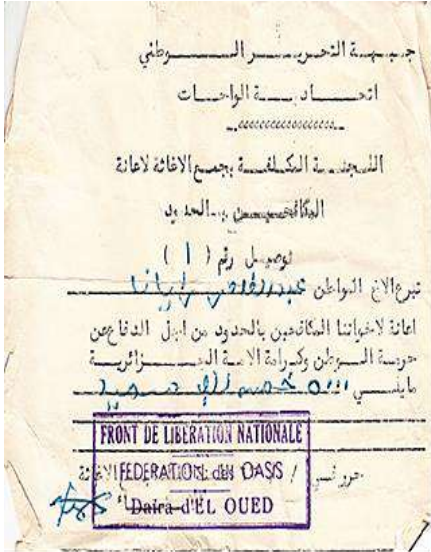 جبهة التحرير الوطني
اتحادية الواحات
اللجنة المكلفة بجمع الاغاثة لاعانة
المكافحين بالحدود
توصيل رقم ( 1 )
تبرع الاخ المواطن
اعانة لاخواننا المكافحين بالحدود من اجل الدفاع عن
حرمة الوطن وكرامة الامة الجزائرية
مايلي
FRONT DE LIBERATION NATIONALE
FEDERATION des OASIS
Daïra d'EL OUED
حرر في /